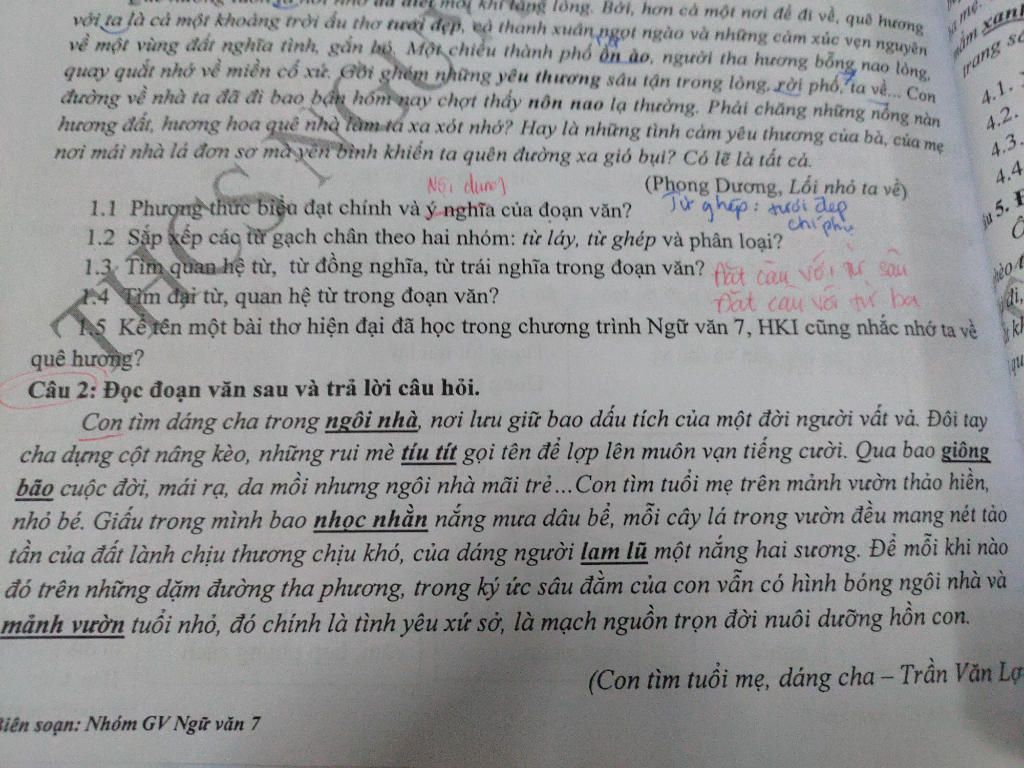 khi lắng lòng. Bởi, hơn cả một nơi để đi về, quê hương
với ta là cả một khoảng trời ấu thơ tươi đẹp, cả thanh xuân ngọt ngào và những cảm xúc vẹn nguyên
về một vùng đất nghĩa tình, gắn bó. Một chiều thành phố ồn ào, người tha hương bỗng nao lòng,
quay quắt nhớ về miền cố xứ. Gói ghém những yêu thương sâu tận trong lòng, rời phố, ta về... Con
đường về nhà ta đã đi bao bận hôm nay chợt thấy nôn nao lạ thường. Phải chăng những nồng nàn
hương đất, hương hoa quê nhà làm ta xa xót nhớ? Hay là những tình cảm yêu thương của bà, của mẹ
nơi mái nhà lá đơn sơ mà yên bình khiến ta quên đường xa gió bụi? Có lẽ là tất cả.
(Phong Dương, Lối nhỏ ta về)
Nội dung
1.1 Phương thức biểu đạt chính và ý nghĩa của đoạn văn?
Từ ghép: tươi đẹp
chính phụ
1.2 Sắp xếp các từ gạch chân theo hai nhóm: từ láy, từ ghép và phân loại?
1.3 Tìm quan hệ từ, từ đồng nghĩa, từ trái nghĩa trong đoạn văn?
Đặt câu với từ sâu
1.4 Tìm đại từ, quan hệ từ trong đoạn văn?
Đặt câu với từ ba
1.5 Kể tên một bài thơ hiện đại đã học trong chương trình Ngữ văn 7, HKI cũng nhắc nhớ ta về
quê hương?
Câu 2: Đọc đoạn văn sau và trả lời câu hỏi.
Con tìm dáng cha trong ngôi nhà, nơi lưu giữ bao dấu tích của một đời người vất vả. Đôi tay
cha dựng cột nâng kèo, những rui mè tíu tít gọi tên để lợp lên muôn vạn tiếng cười. Qua bao giông
bão cuộc đời, mái rạ, da mồi nhưng ngôi nhà mãi trẻ...Con tìm tuổi mẹ trên mảnh vườn thảo hiền,
nhỏ bé. Giấu trong mình bao nhọc nhằn nắng mưa dâu bể, mỗi cây lá trong vườn đều mang nét tảo
tần của đất lành chịu thương chịu khó, của dáng người lam lũ một nắng hai sương. Để mỗi khi nào
đó trên những dặm đường tha phương, trong ký ức sâu đằm của con vẫn có hình bóng ngôi nhà và
mảnh vườn tuổi nhỏ, đó chính là tình yêu xứ sở, là mạch nguồn trọn đời nuôi dưỡng hồn con.
(Con tìm tuổi mẹ, dáng cha – Trần Văn
Biên soạn: Nhóm GV Ngữ văn 7
THCS
trang
4.1.
4.2.
4.3.
4.4
5.